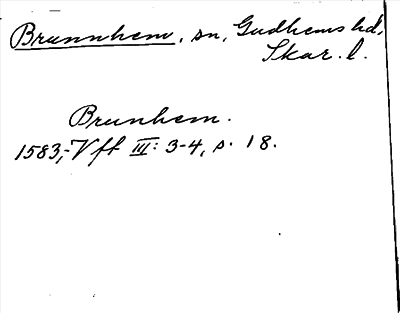 Brunnhem, sn, Gudhems hd,
Skar. l.
Brunhem.
1583; Vft III: 3-4, s. 18.